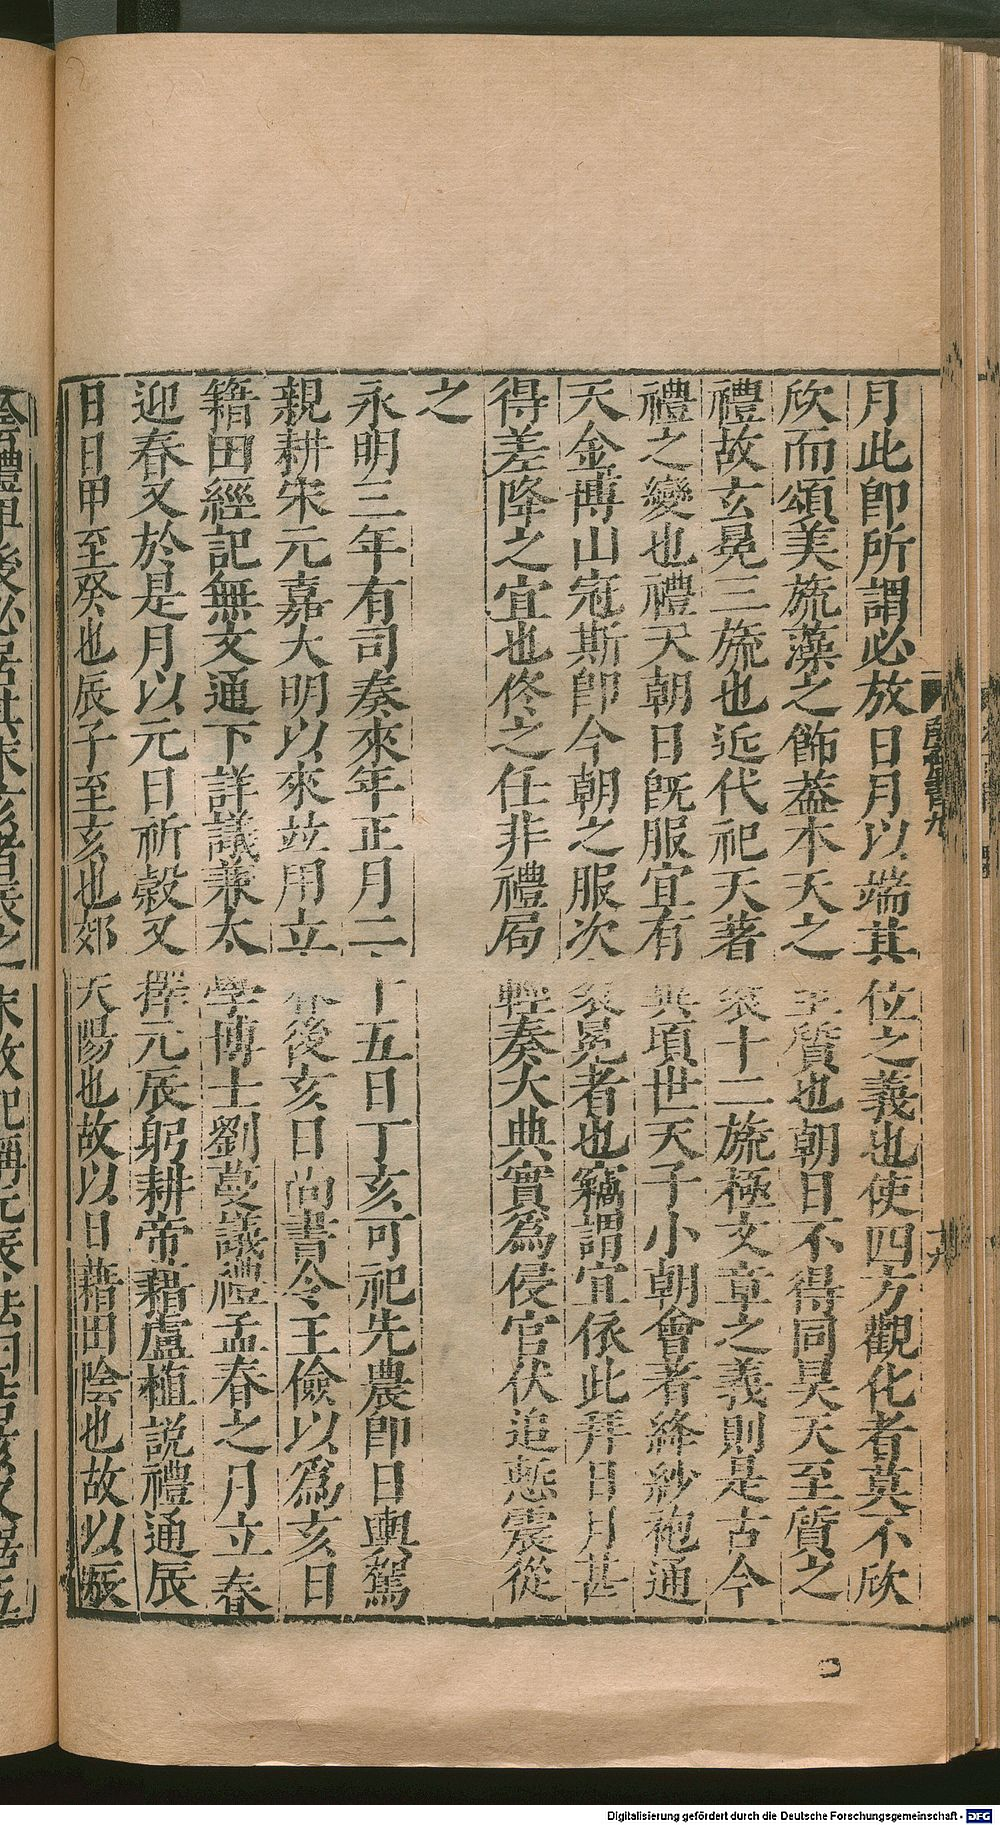 月此卽所謂必放日月以端其位之義也使四方觀化者莫不欣
欣而頌美旒藻之飾葢本天之至質也朝日不得同昊天至質之
禮故玄冕三旒也近代祀天著衮十二旒極文章之義則是古今
禮之變也禮天朝日旣服宜有異頃世天子小朝會著絳紗袍通
天金博山冠斯卽今朝之服次衮冕者也竊謂宜依此拜日月甚
得差降之宜也佟之任非禮局輕奏大典實爲侵官伏追慙震從
之
永明三年有司奏來年正月二十五日丁亥可祀先農卽日輿駕
親耕宋元嘉大明以來竝用立春後亥日尚書令王儉以爲亥日
籍田經記無文通下詳議兼太學博士劉蔓議禮孟春之月立春
迎春又於是月以元日祈穀又擇元辰躬耕帝籍盧植說禮通辰
日日甲至癸也辰子至亥也郊天陽也故以日藉田陰也故以辰
Digitalisierung gefördert durch die Deutsche Forschungsgemeinschaft - DFG